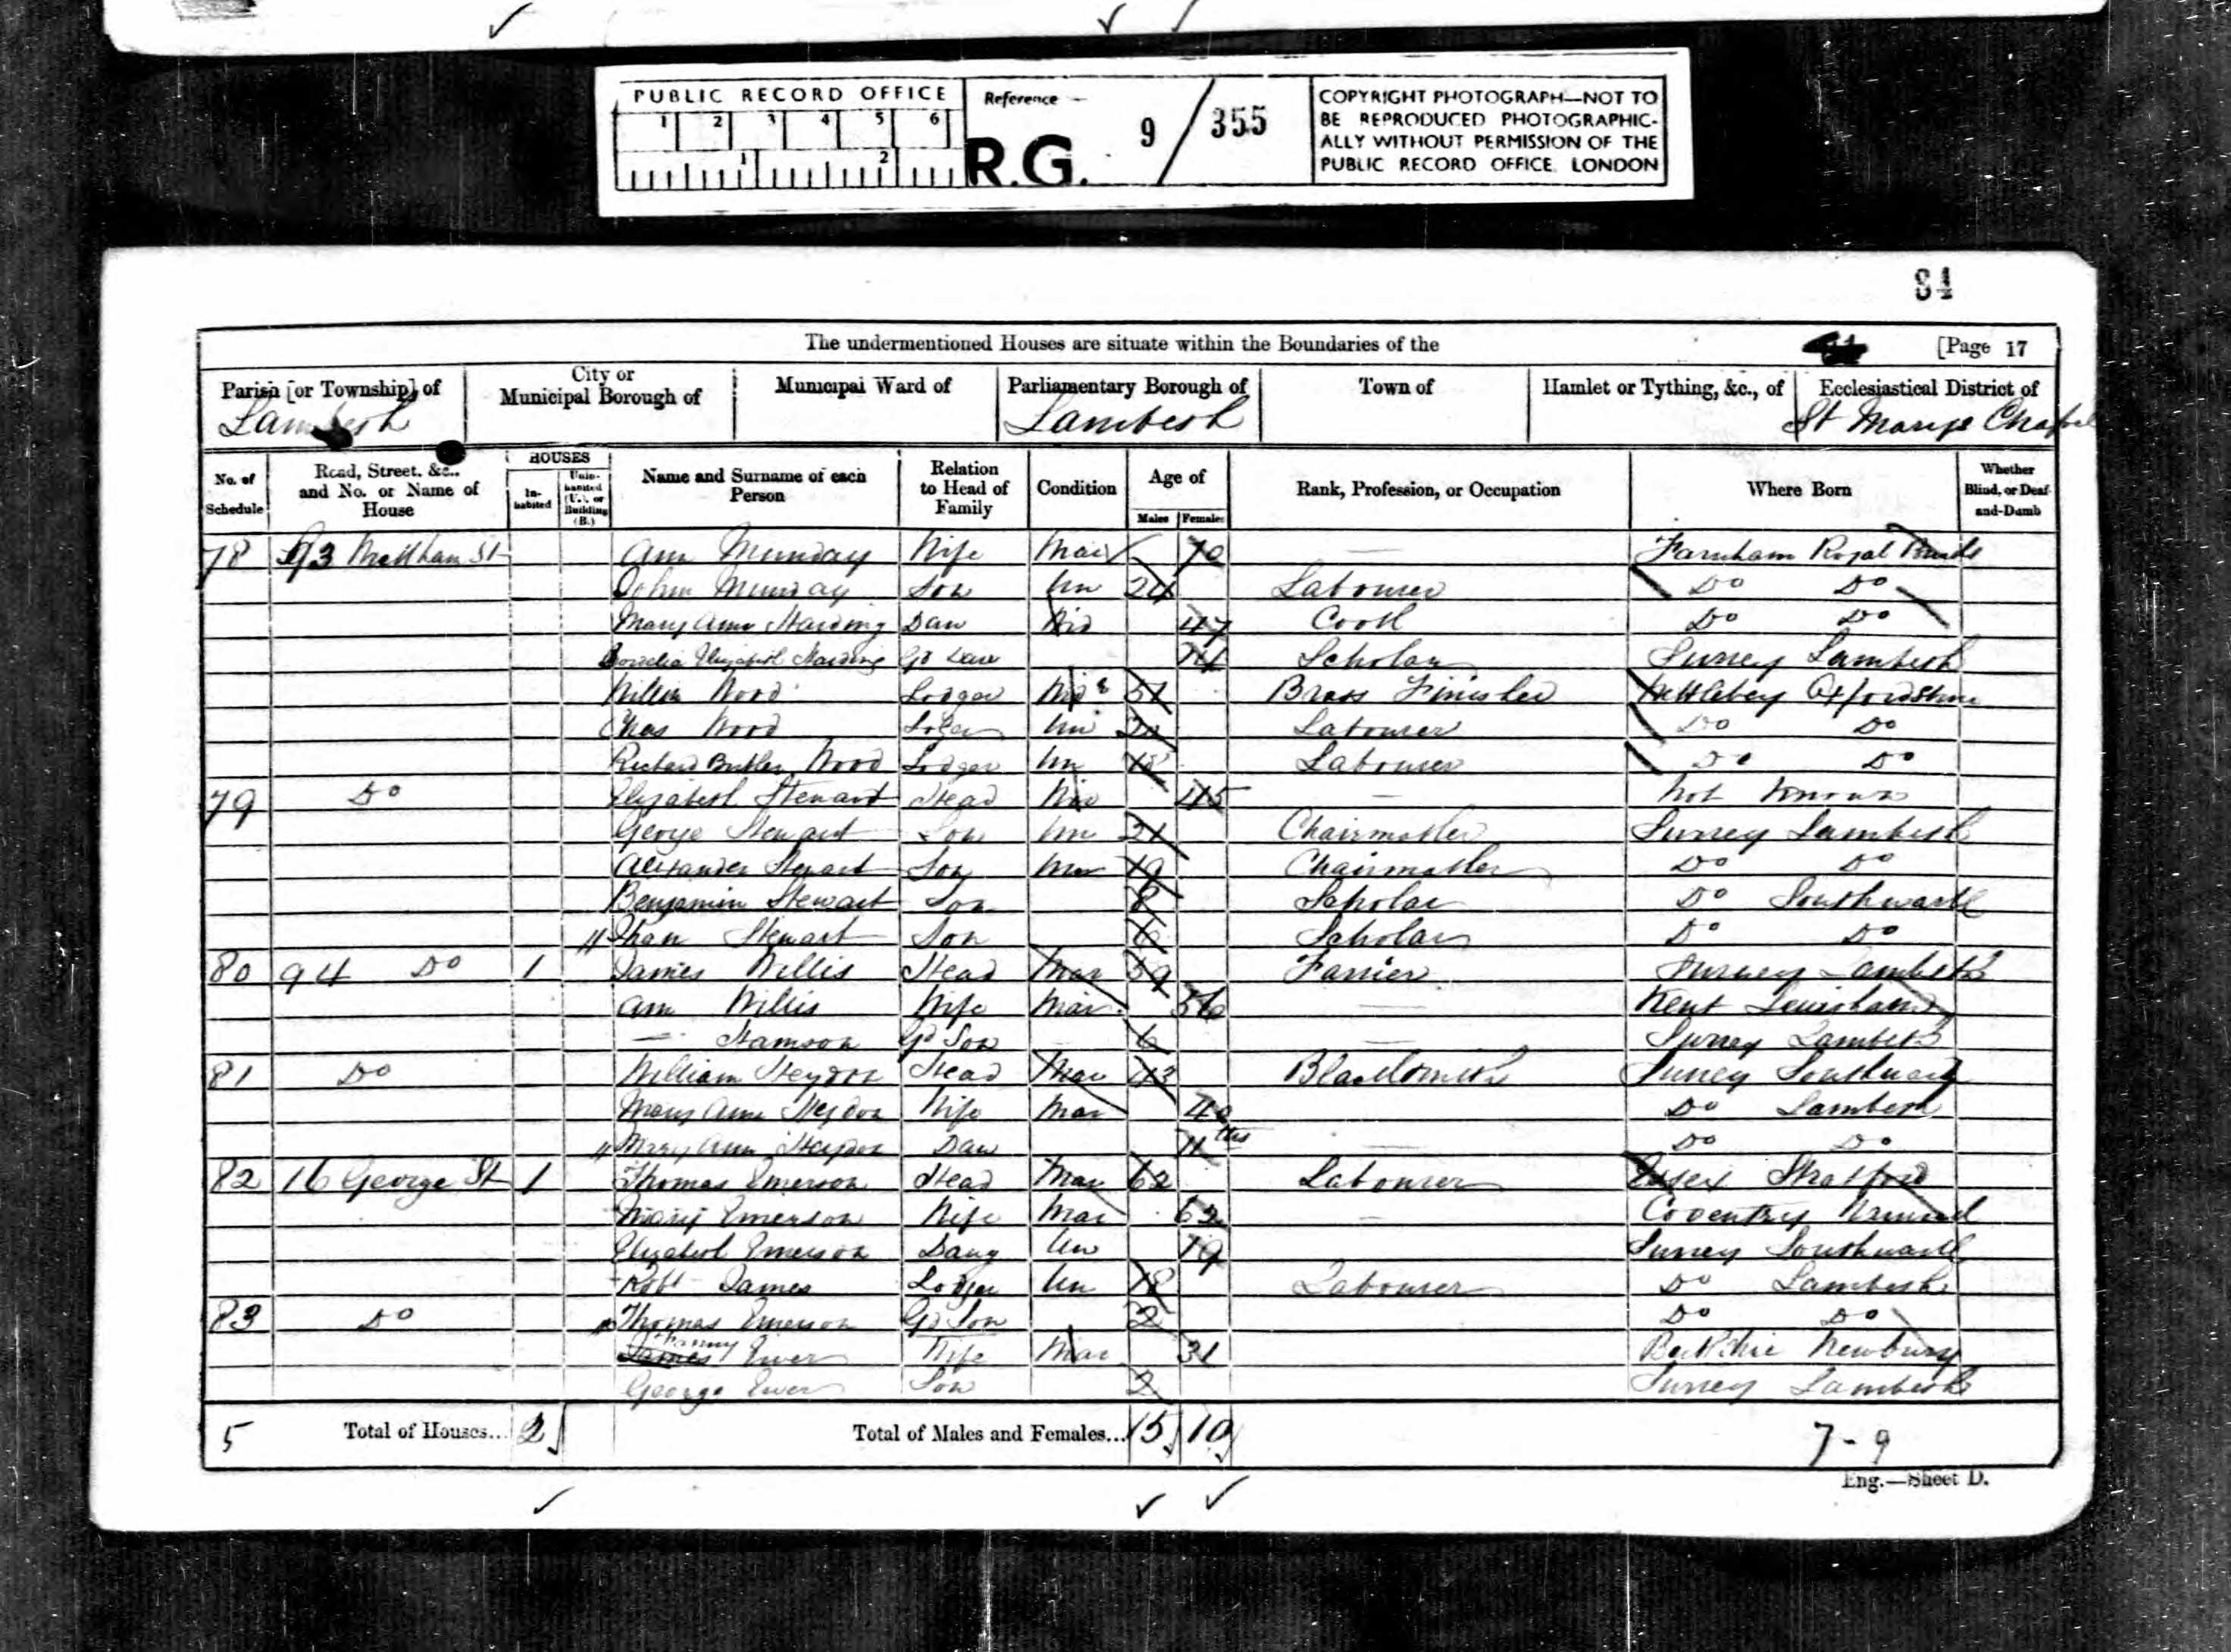 PUBLIC RECORD OFFICE
1 2 3 4 5 6
1 2
Reference
R.G. 9 / 355
COPYRIGHT PHOTOGRAPH—NOT TO
BE REPRODUCED PHOTOGRAPHIC-
ALLY WITHOUT PERMISSION OF THE
PUBLIC RECORD OFFICE. LONDON
84
The undermentioned Houses are situate within the Boundaries of the [Page 17
Parish [or Township] of City or Municipal Borough of Municipal Ward of Parliamentary Borough of Town of Hamlet or Tything, &c., of Ecclesiastical District of
Lambeth Lambeth St Marys Chapel
No. of Schedule Road, Street, &c., and No. or Name of House HOUSES Inhabited Uninhabited (U.), or Building (B.) Name and Surname of each Person Relation to Head of Family Condition Age of Males Females Rank, Profession, or Occupation Where Born Whether Blind, or Deaf-and-Dumb
78 93 St Ann Munday Wife Mar 70 — Farnham Royal Bucks
John Munday Son Un 24 Labourer Do Do
Mary Ann Harding Dau Wid 47 Cook Do Do
Elizabeth Harding Gd Dau 14 Scholar Surrey Lambeth
Willm Wood Lodger Widr 51 Brass Finisher Nettlebey Oxfordshire
Chas Wood Lodger Un 20 Labourer Do Do
Richard Butler Wood Lodger Un 18 Labourer Do Do
79 Do Elizabeth Stewart Head Wid 45 — Not Known
George Stewart Son Un 21 Chairmaker Surrey Lambeth
Alexander Stewart Son Un 19 Chairmaker Do Do
Benjamin Stewart Son 8 Scholar Do Southwark
Stewart Son 6 Scholar Do Do
80 94 Do 1 James Willis Head Mar 59 Farrier Surrey Lambeth
Ann Willis Wife Mar 56 — Kent Lewisham
— Hamson Gd Son 6 — Surrey Lambeth
81 Do William Heydon Head Mar 43 Blacksmith Surrey Southwark
Mary Ann Heydon Wife Mar 40 Do Lambeth
Mary Ann Heydon Dau 11 — Do Do
82 16 George St 1 Thomas Emerson Head Mar 62 Labourer Essex Stratford
Mary Emerson Wife Mar 62 — Coventry
Elizabeth Emerson Daug Un 19 Surrey Southwark
Robt James Lodger Un 18 Labourer Do Lambeth
83 Do Thomas Emerson Gd Son 2 Do Do
James Fanny Ewer Wife Mar 31 Berkshire Newbury
George Ewer Son 2 Surrey Lambeth
5 Total of Houses... 2 Total of Males and Females... 15 10 7-9
Eng.—Sheet D.